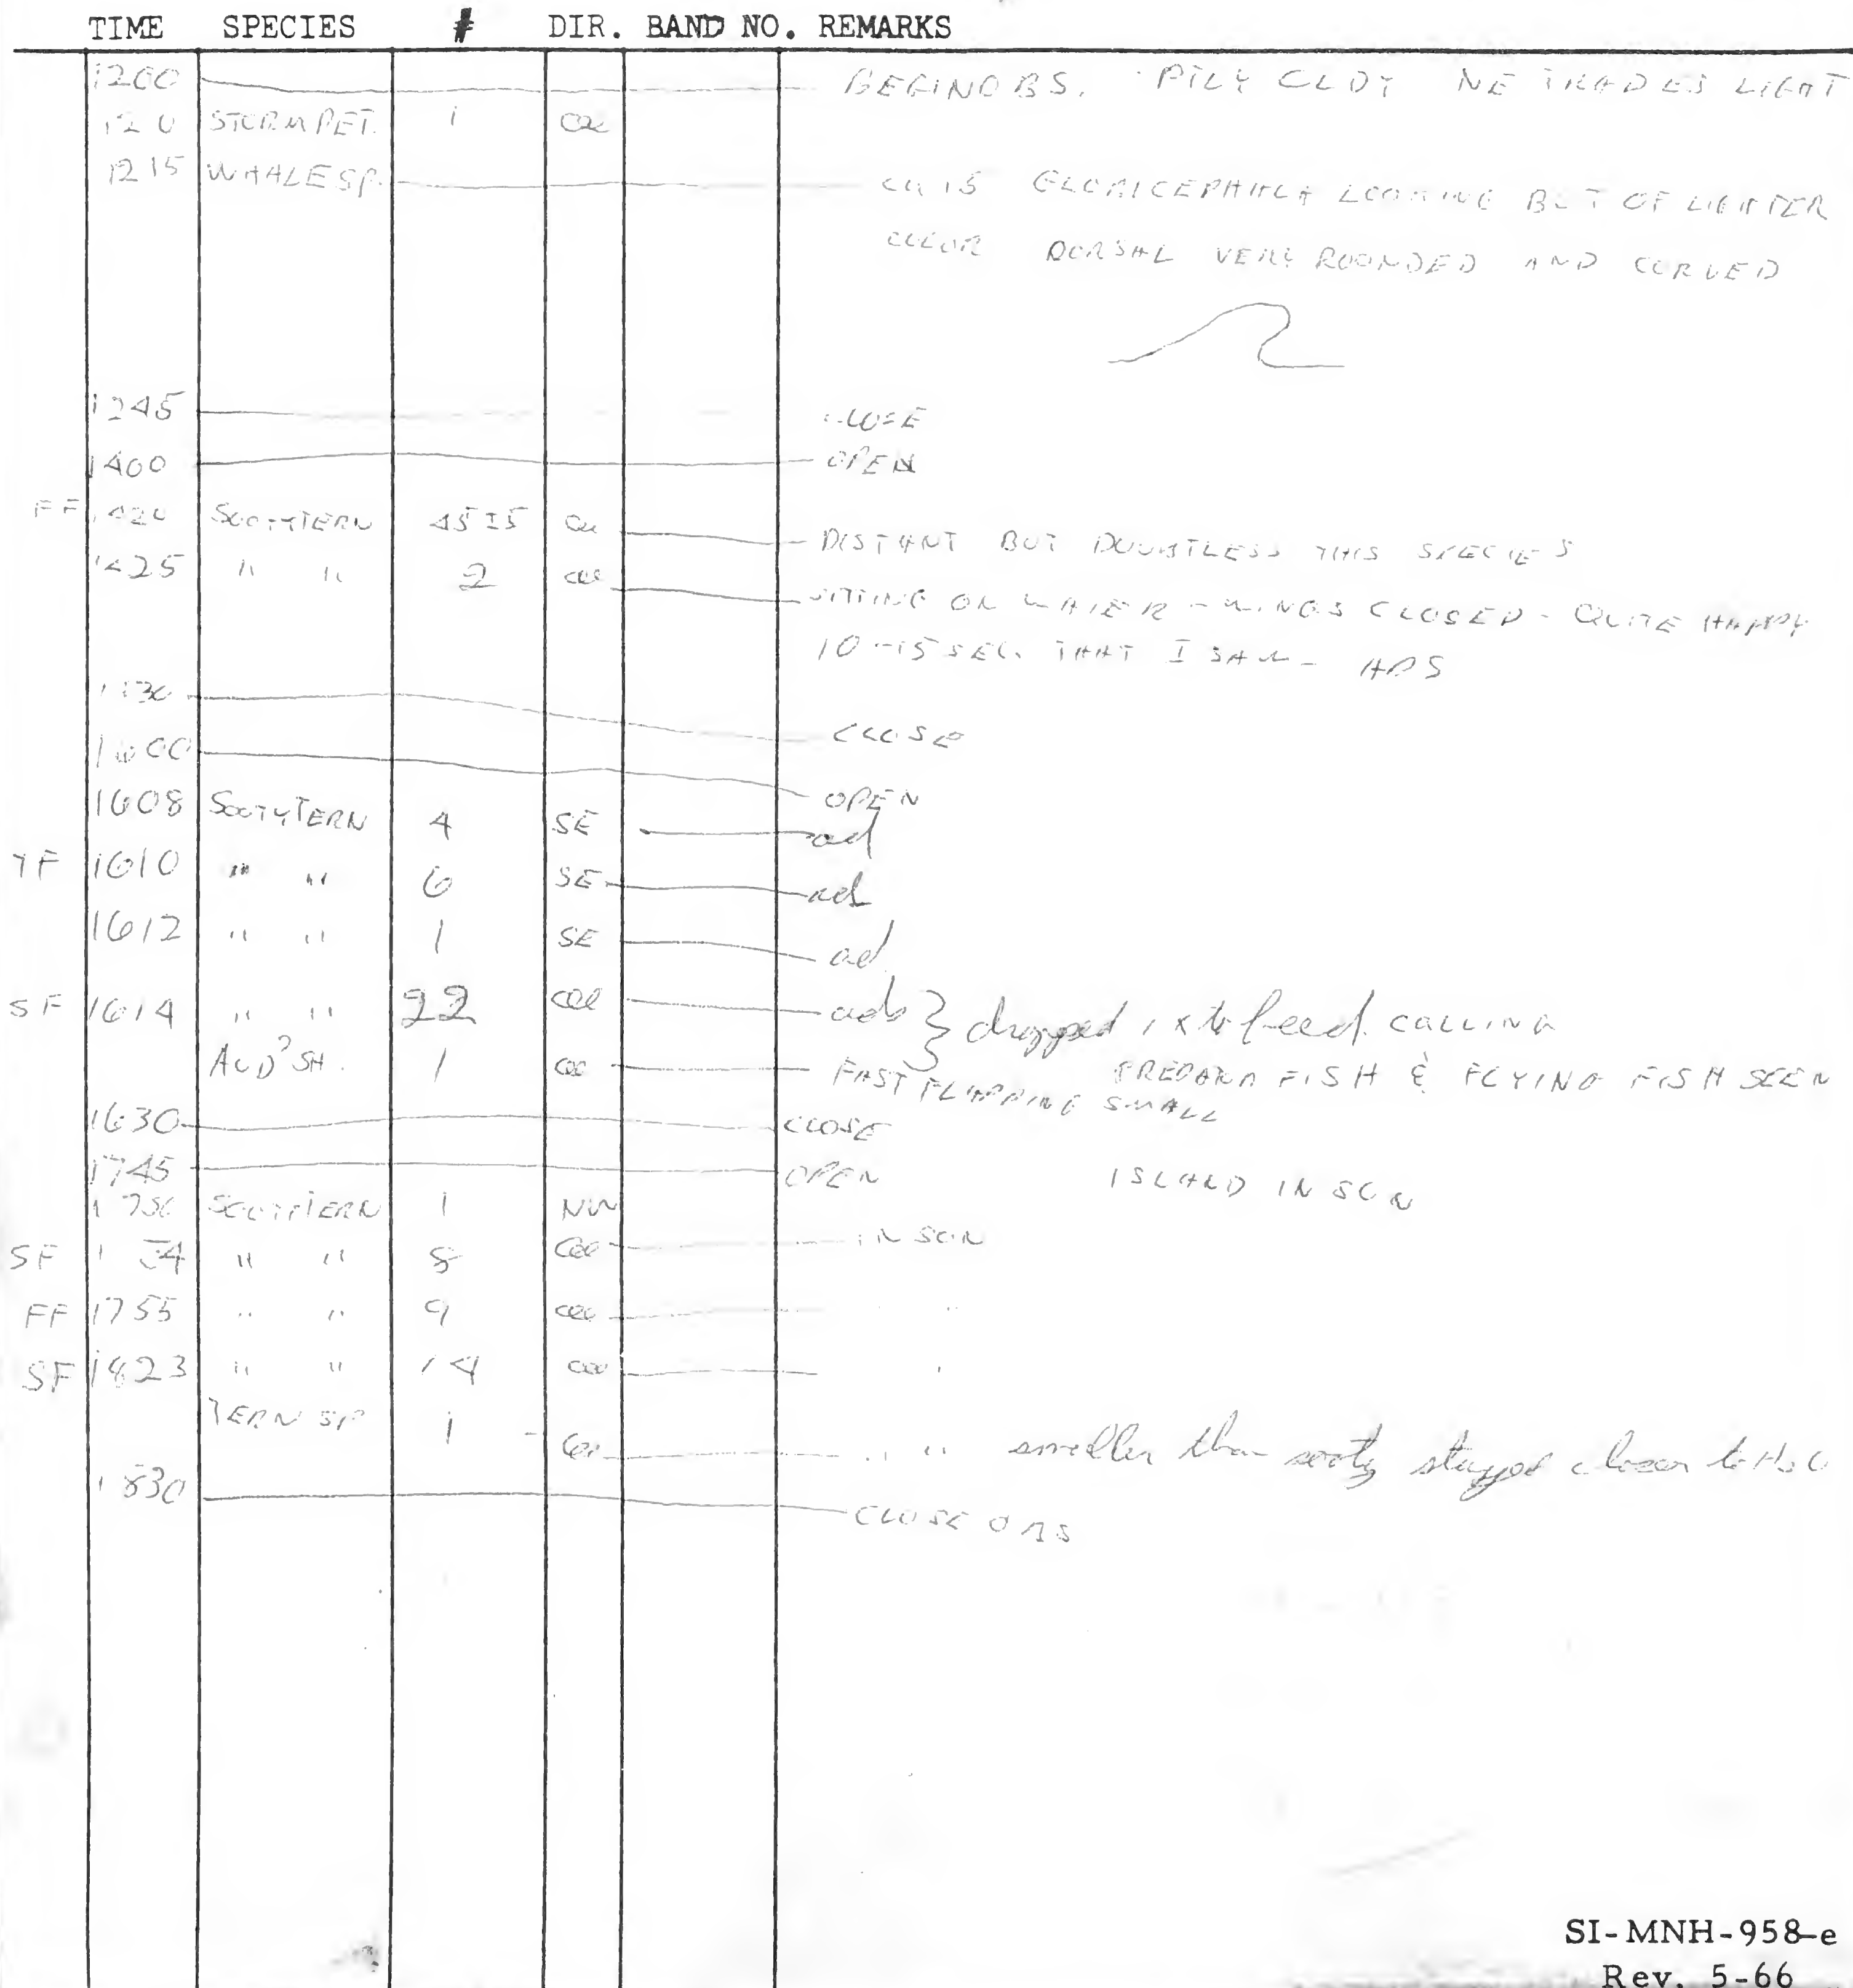 TIME SPECIES # DIR. BAND NO. REMARKS
1200 BEGIN OBS. PTLY CLDY NE TRADES LIGHT
STORM PET. 1
1215 WHALE SP. CA 15 LOOKING BUT OF LIGHTER
COLOR DORSAL VERY ROUNDED AND CURVED
1245 CLOSE
1400 OPEN
FF 1420 SOOTY TERN 45±5 DISTANT BUT DOUBTLESS THIS SPECIES
1425 " " 2 SITTING ON WATER - WINGS CLOSED - QUITE HAPPY
10-15 SEC. THAT I SAW -
CLOSE
1600 OPEN
1608 SOOTY TERN 4 SE ad
1610 " " 6 SE ad
1612 " " 1 SE ad
SF 1614 " " 22 ads } dropped 1 x to feed. CALLING
AUD? SH. 1 FAST FLAPPING SMALL FISH & FLYING FISH SEEN
1630 CLOSE
1745 OPEN ISLAND IN SUN
SOOTY TERN 1 NW
SF " " 8 IN SUN
FF 1755 " " 9 " "
SF 1823 " " 14 "
TERN SP 1 " " smaller than sooty stayed closer to H2O
1830 CLOSE OBS
SI-MNH-958-e
Rev. 5-66